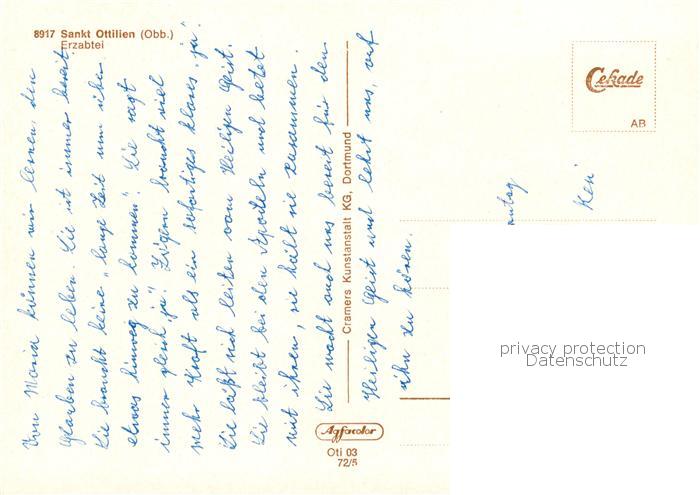 8917 Sankt Ottilien (Obb.)
Erzabtei
Von Maria können wir lernen, den
Glauben zu leben. Sie ist immer bereit.
Sie braucht keine „lange Zeit um über
etwas hinweg zu kommen". Sie sagt
immer gleich „ja". Zögern braucht viel
mehr Kraft als ein sofortiges klares „ja".
Sie läßt sich leiten vom Heiligen Geist.
Sie bleibt bei den Aposteln und betet
mit ihnen, sie hält sie zusammen.
Sie macht auch uns bereit für den
Heiligen Geist und lehrt uns, auf
ihn zu hören.
Cramers Kunstanstalt KG, Dortmund
Agfacolor
Oti 03
72/5
Cekade
AB
privacy protection
Datenschutz